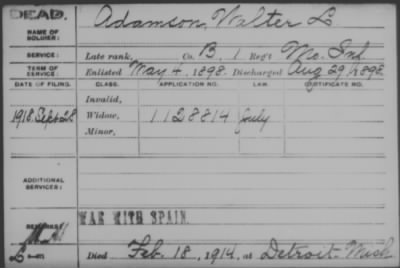 DEAD.
NAME OF SOLDIER: Adamson, Walter L.
SERVICE: Late rank, Co. B, 1 Reg't Mo. Inf.
TERM OF SERVICE: Enlisted May 4, 1898. Discharged Aug 29, 1898.
DATE OF FILING. CLASS. APPLICATION NO. LAW. CERTIFICATE NO.
Invalid,
1918. Sept 28 Widow, 1128814 July
Minor,
ADDITIONAL SERVICES:
REMARKS:
WAR WITH SPAIN.
Died Feb. 18, 1914, at Detroit Mich